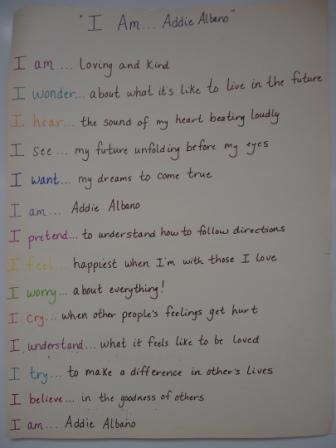 "I Am... Addie Albano"
I am... Loving and Kind
I wonder... about what it's like to live in the future
I hear... the sound of my heart beating loudly
I see... my future unfolding before my eyes
I want... my dreams to come true
I am... Addie Albano
I pretend... to understand how to follow directions
I feel... happiest when I'm with those I love
I worry... about everything!
I cry... when other people's feelings get hurt
I understand... what it feels like to be loved
I try... to make a difference in other's lives
I believe... in the goodness of others
I am... Addie Albano